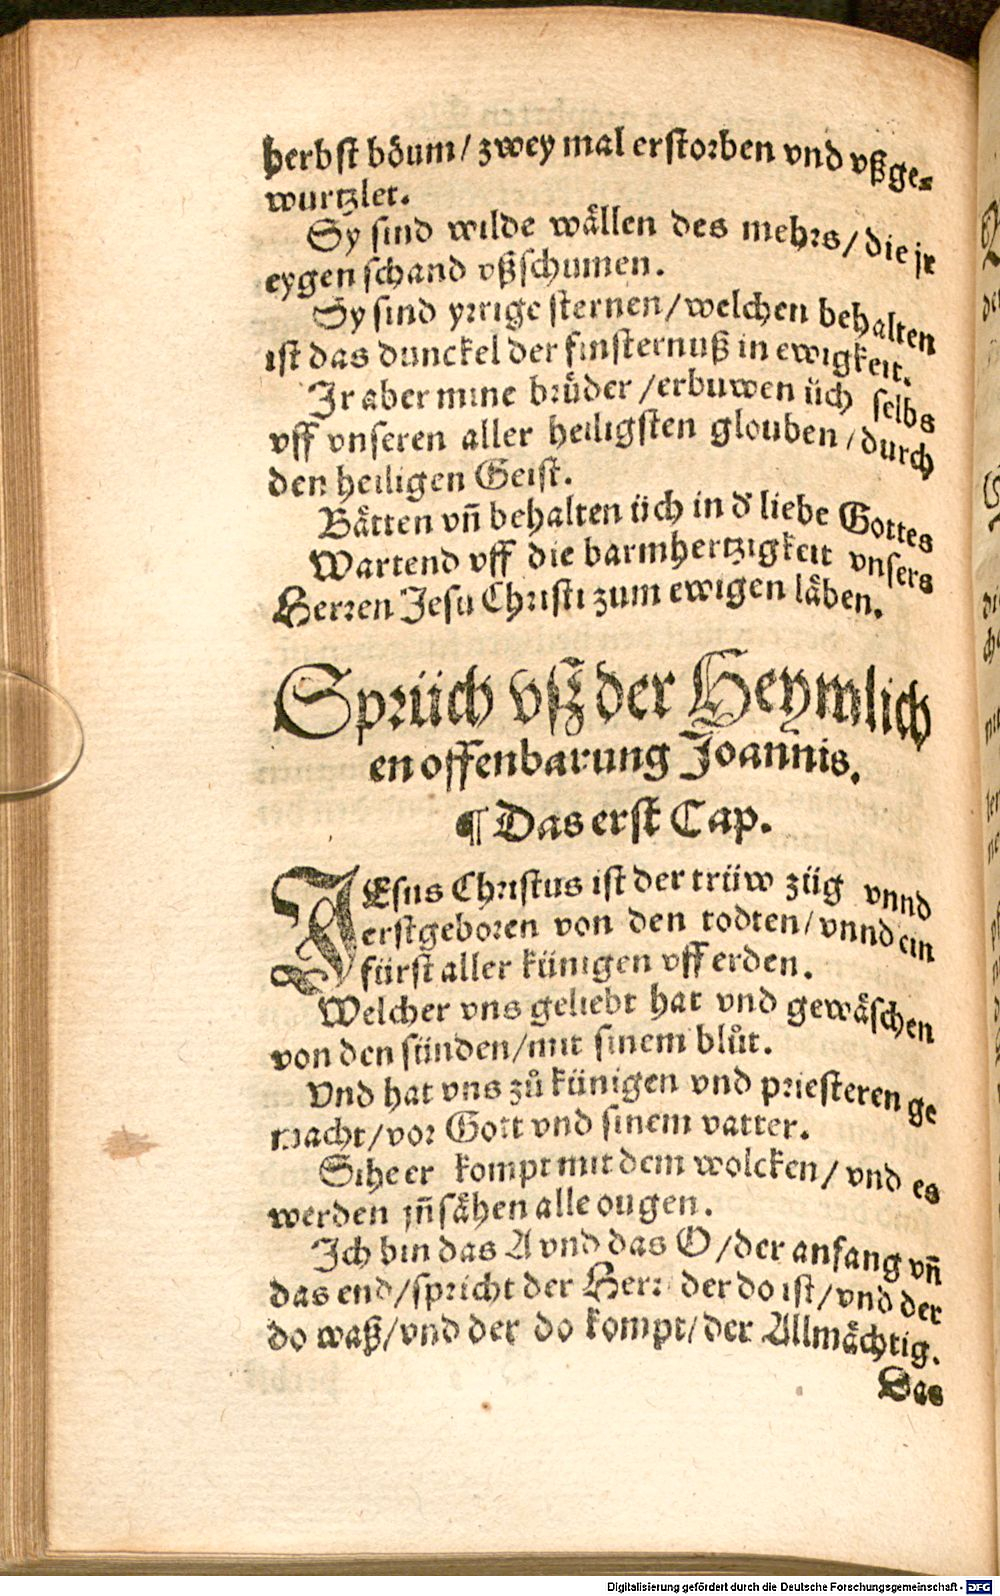 herbst böum/ zwey mal erstorben vnd vßge-
wurtzlet.
Sy sind wilde wällen des mehrs/ die jr
eygen schand vßschumen.
Sy sind yrrige sternen/welchen behalten
ist das dunckel der finsternuß in ewigkeit.
Ir aber mine brůder /erbuwen üch selbs
vff vnseren aller heiligsten glouben/durch
den heiligen Geist.
Bätten vn̄ behalten üch in d' liebe Gottes
Wartend vff die barmhertzigkeit vnsers
Herren Jesu Christi zum ewigen läben.
Sprüch vß der Heymlich
en offenbarung Joannis.
¶ Das erst Cap.
JEsus Christus ist der trüw züg vnnd
erstgeboren von den todten/vnnd ein
fürst aller künigen vff erden.
Welcher vns geliebt hat vnd gewäschen
von den sünden/mit sinem blůt.
Vnd hat vns zů künigen vnd priesteren ge
macht/vor Gott vnd sinem vatter.
Sihe er kompt mit dem wolcken/ vnd es
werden jn̄ sähen alle ougen.
Ich bin das A vnd das O /der anfang vn̄
das end/spricht der Herr der do ist/vnd der
do waß/vnd der do kompt/der Allmächtig.
Das
Digitalisierung gefördert durch die Deutsche Forschungsgemeinschaft - DFG